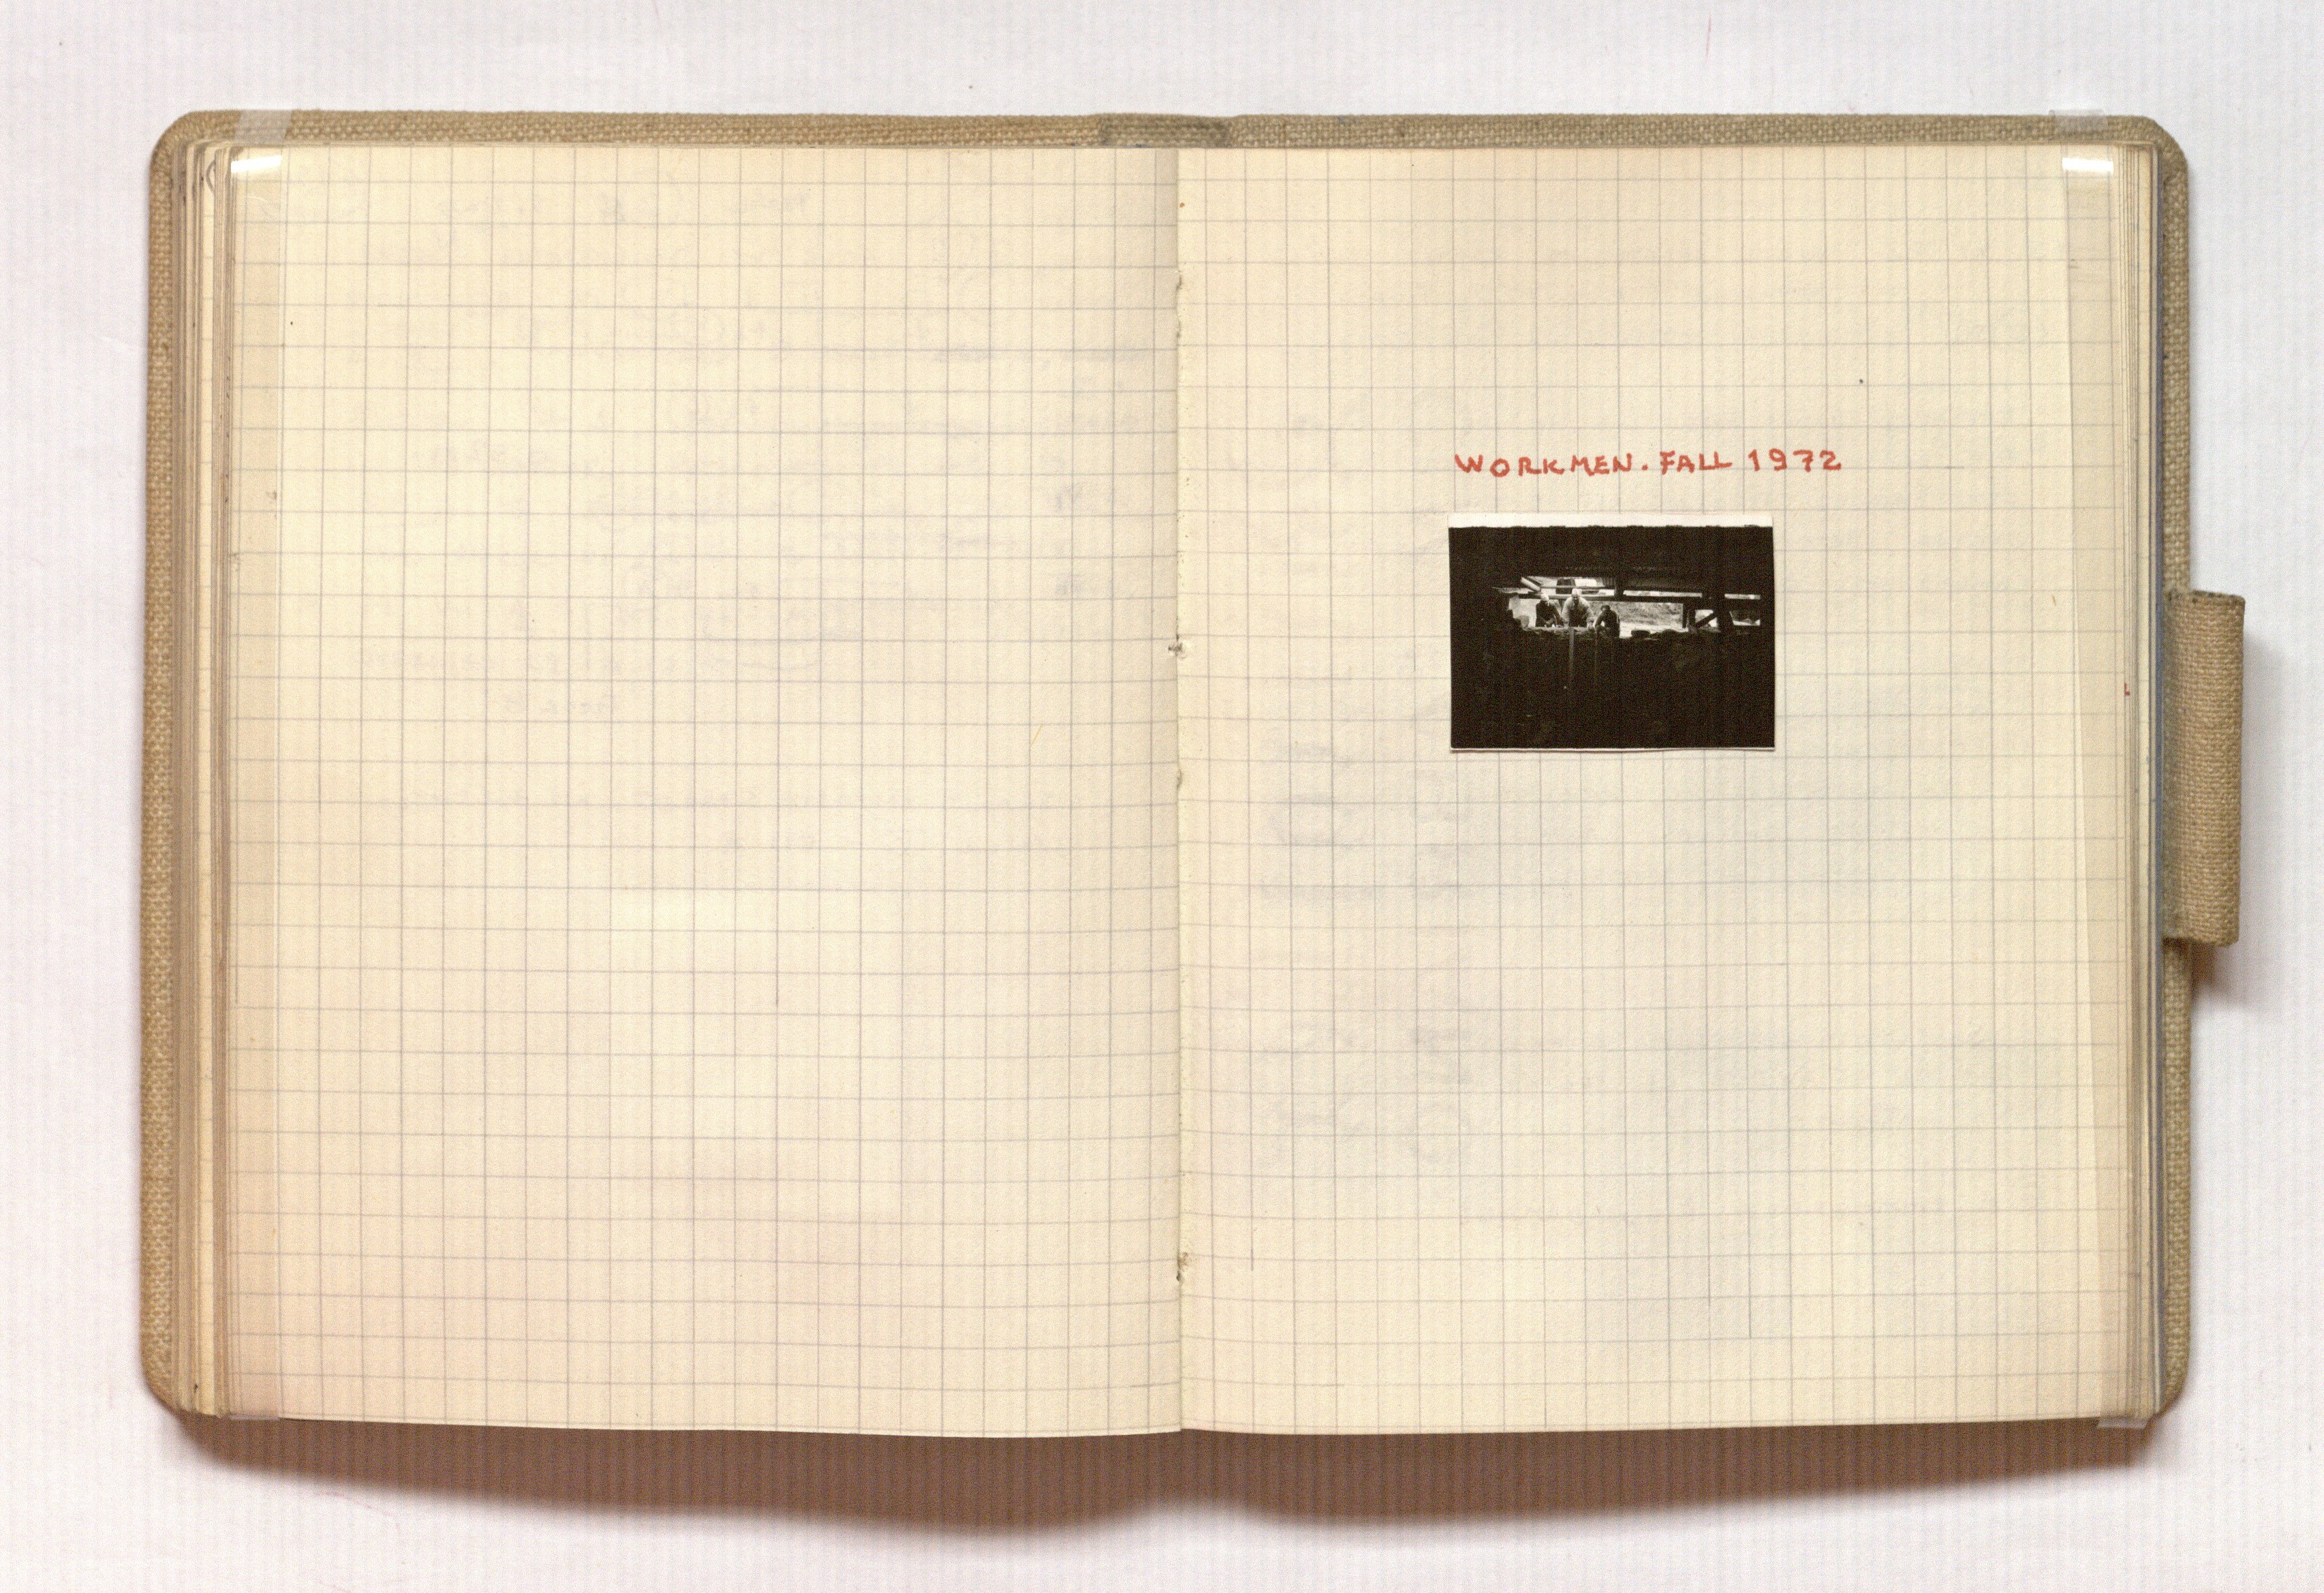 WORKMEN. FALL 1972